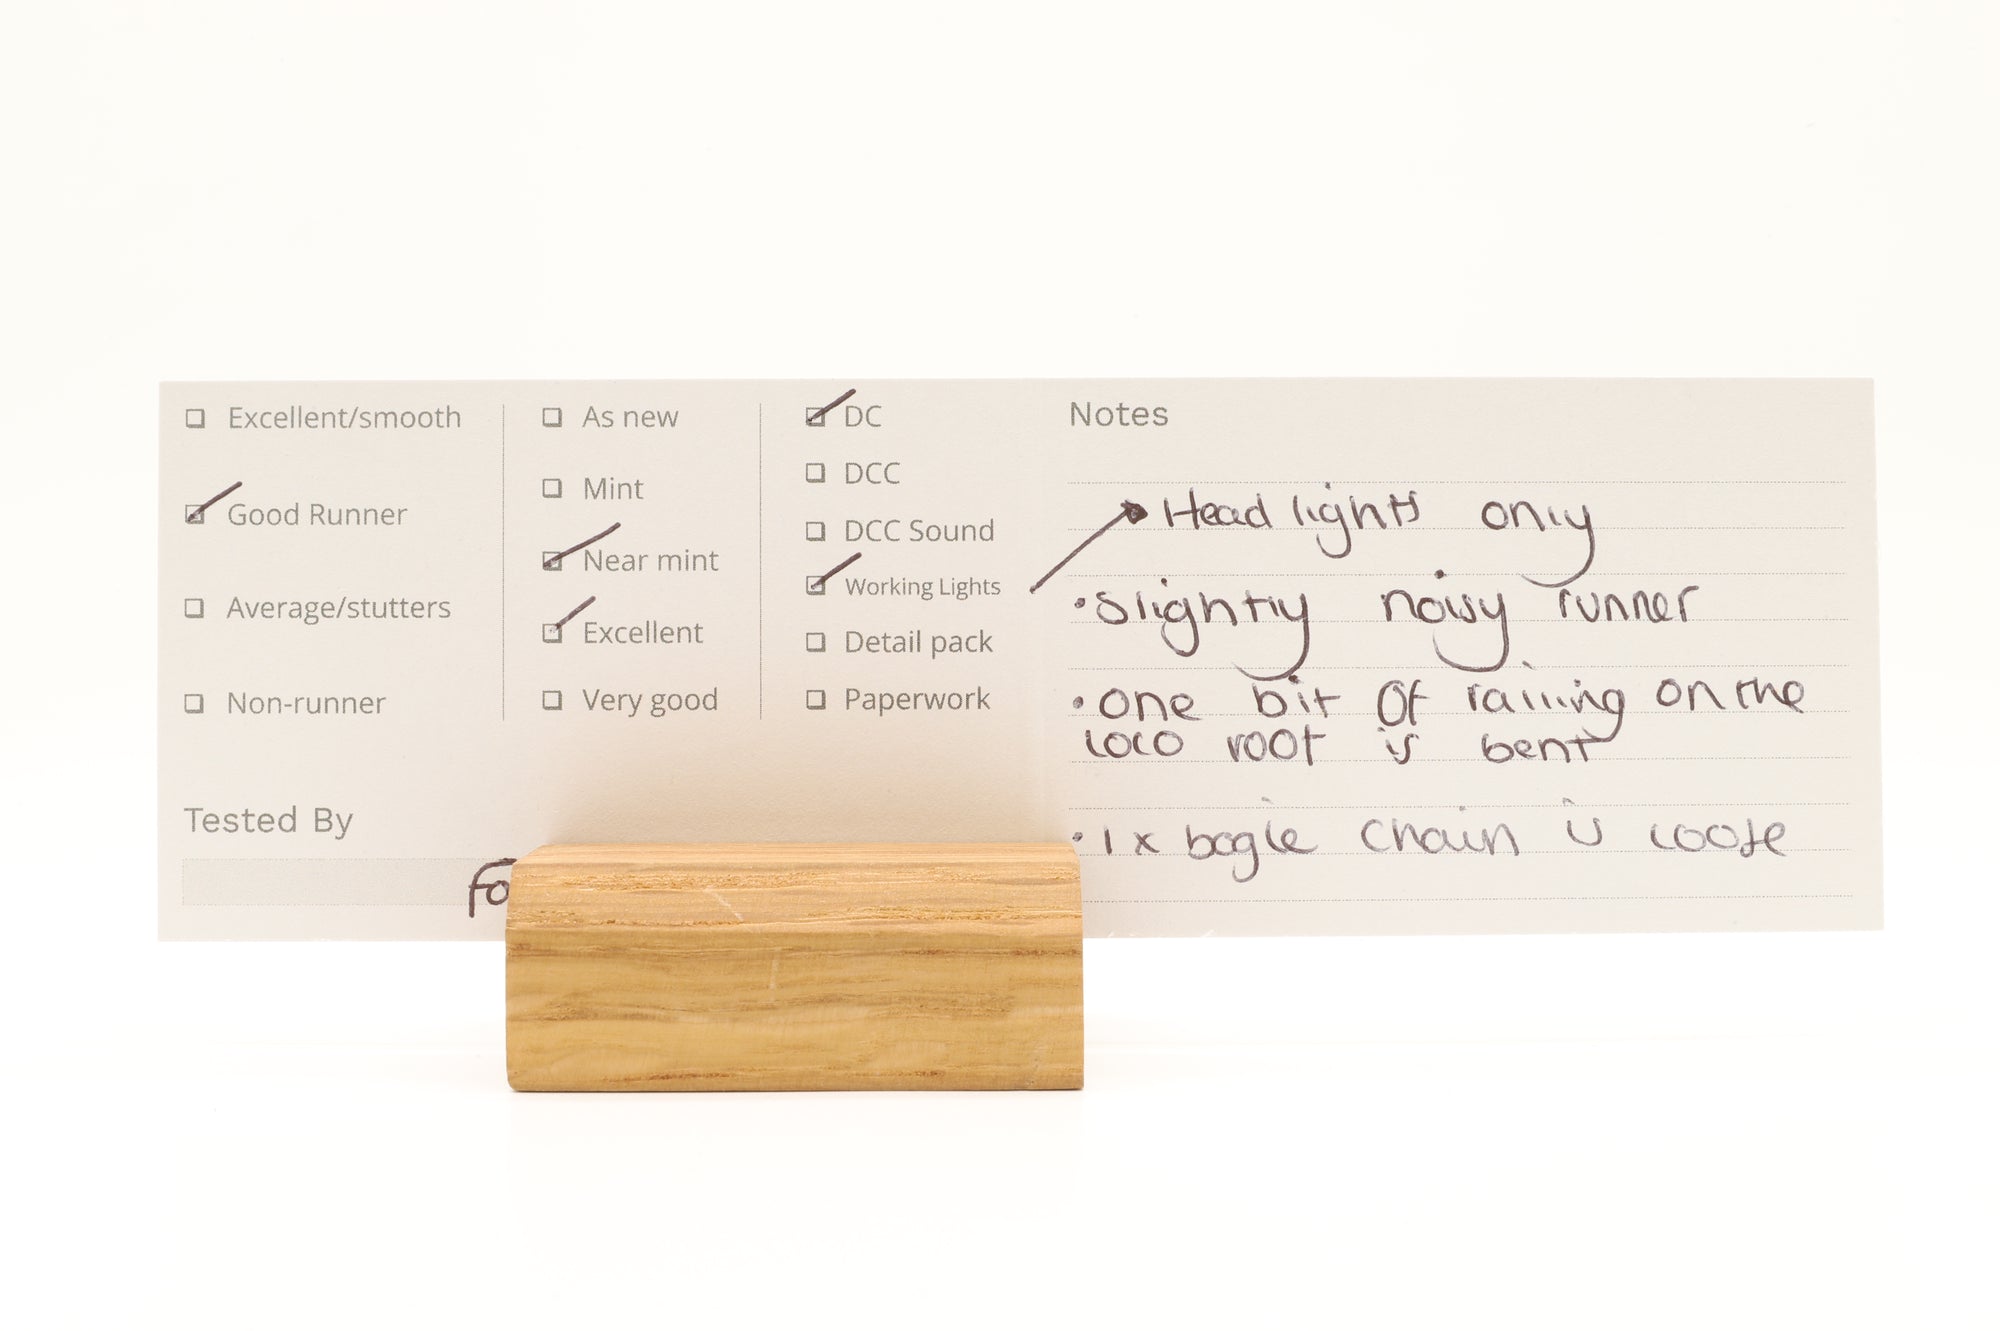 Excellent/smooth
Good Runner
Average/stutters
Non-runner
Tested By
As new
Mint
Near mint
Excellent
Very good
DC
DCC
DCC Sound
Working Lights
Detail pack
Paperwork
Notes
Head lights only
• Slightly noisy runner
• One bit of railing on the
loco roof is bent
• 1 x bogie chain is loose